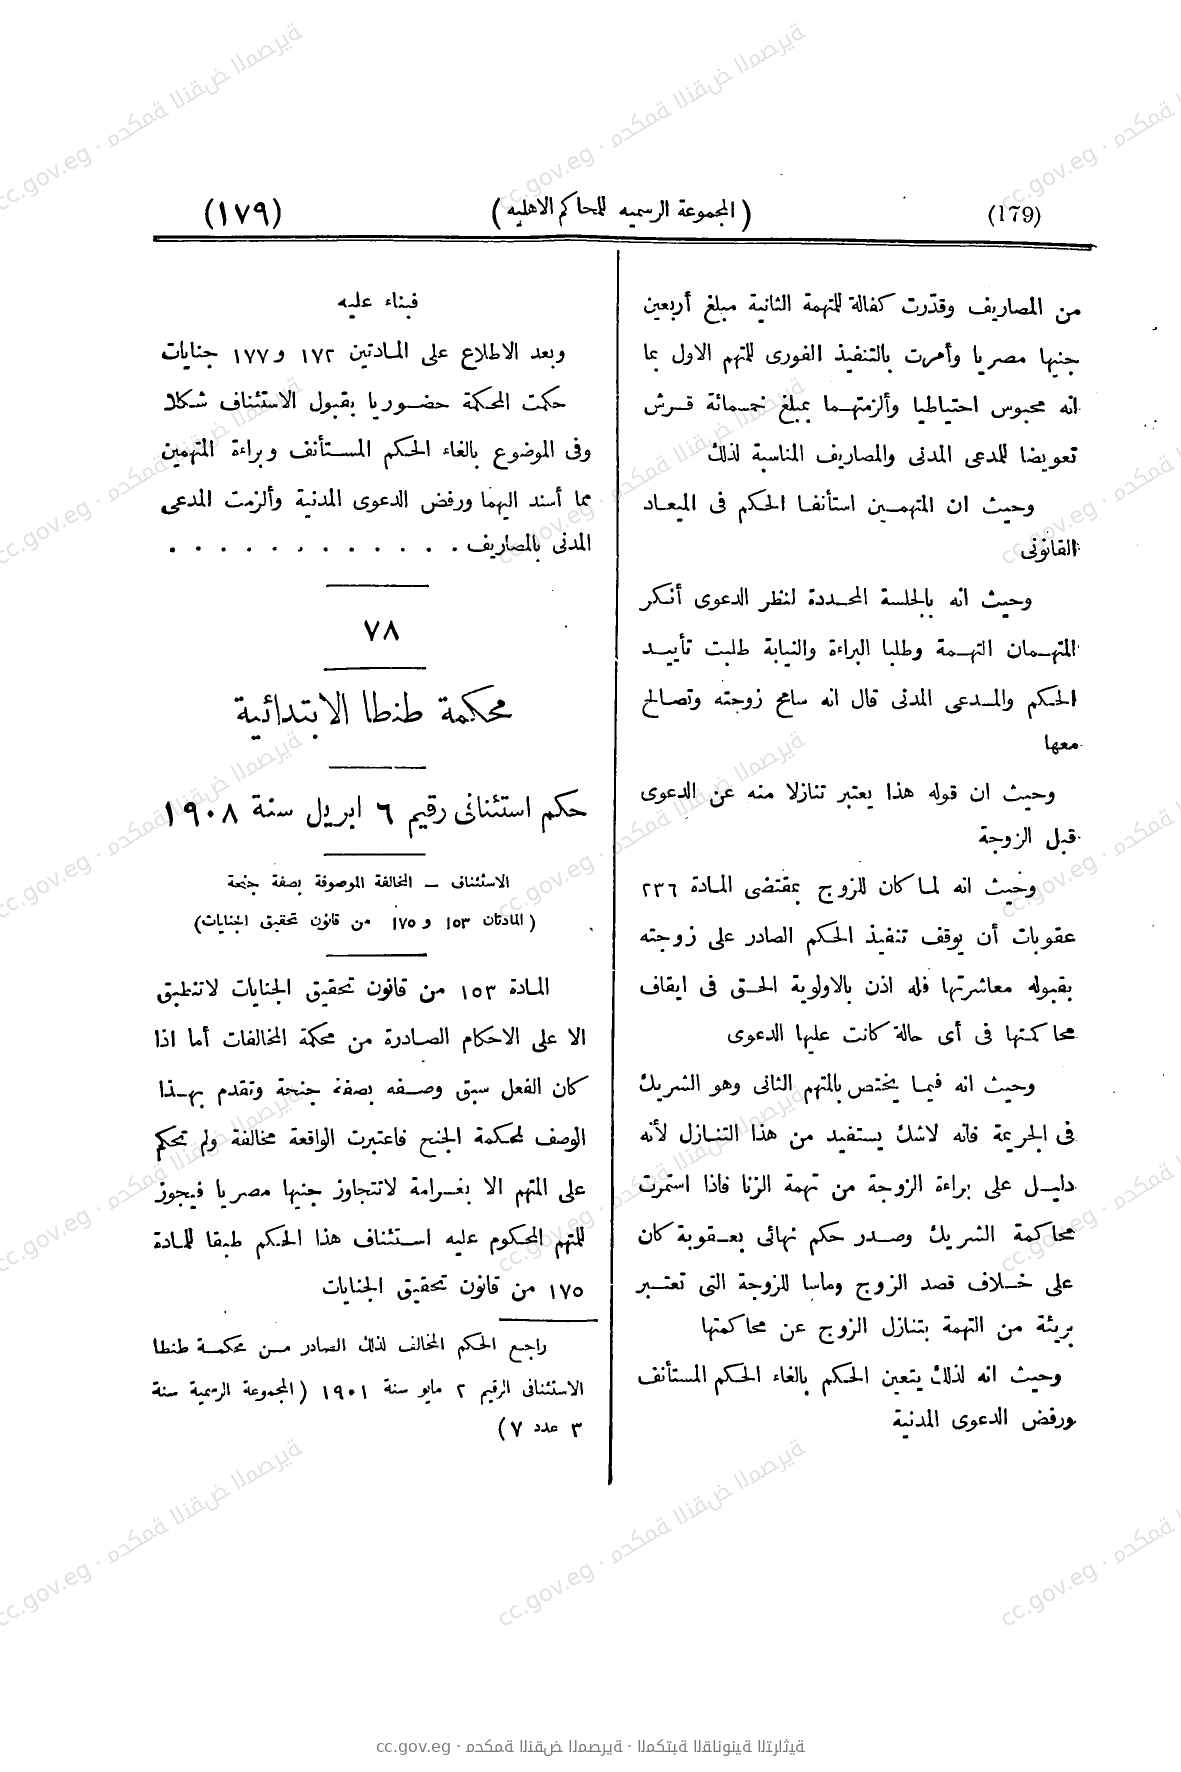 (179) (المجموعة الرسمیه للمحاكم الاهليه) (١٧٩)
من المصاريف وقدّرت كفالة للتهمة الثانية مبلغ أربعين
جنيها مصريا وأمرت بالتنفيذ الفورى للمتهم الاول بما
انه محبوس احتياطيا وألزمتهما بمبلغ خمسمائة قرش
تعويضا للمدعى المدنى والمصاريف المناسبة لذلك
وحيث ان المتهمين استأنفا الحكم فى الميعاد
القانونى
وحيث انه بالجلسة المحددة لنظر الدعوى أنكر
المتهمان التهمة وطلبا البراءة والنيابة طلبت تأييد
الحكم والمدعى المدنى قال انه سامح زوجته وتصالح
معها
وحيث ان قوله هذا يعتبر تنازلا منه عن الدعوى
قبل الزوجة
وحيث انه لما كان للزوج بمقتضى المادة ٢٣٦
عقوبات أن يوقف تنفيذ الحكم الصادر على زوجته
بقبوله معاشرتها فله اذن بالاولوية الحق فى ايقاف
محاكمتها فى أى حالة كانت عليها الدعوى
وحيث انه فيما يختص بالمتهم الثانى وهو الشريك
فى الجريمة فانه لاشك يستفيد من هذا التنازل لأنه
دليل على براءة الزوجة من تهمة الزنا فاذا استمرت
محاكمة الشريك وصدر حكم نهائى بعقوبة كان
على خلاف قصد الزوج وماسا للزوجة التى تعتبر
بريئة من التهمة بتنازل الزوج عن محاكمتها
وحيث انه لذلك يتعين الحكم بالغاء الحكم المستأنف
ورفض الدعوى المدنية
فبناء عليه
وبعد الاطلاع على المادتين ١٧٢ و١٧٧ جنايات
حكمت المحكمة حضوريا بقبول الاستئناف شكلا
وفى الموضوع بالغاء الحكم المستأنف وبراءة المتهمين
مما أسند اليهما ورفض الدعوى المدنية وألزمت المدعى
المدنى بالمصاريف . . . . . . . . . . . .
٧٨
محكمة طنطا الابتدائية
حكم استئنافى رقيم ٦ ابريل سنة ١٩٠٨
الاستئناف – المخالفة الموصوفة بصفة جنحة
(المادتان ١٥٣ و ١٧٥ من قانون تحقيق الجنايات)
المادة ١٥٣ من قانون تحقيق الجنايات لاتنطبق
الا على الاحكام الصادرة من محكمة المخالفات أما اذا
كان الفعل سبق وصفه بصفة جنحة وتقدم بهذا
الوصف لمحكمة الجنح فاعتبرت الواقعة مخالفة ولم تحكم
على المتهم الا بغرامة لاتتجاوز جنيها مصريا فيجوز
للمتهم المحكوم عليه استئناف هذا الحكم طبقا للمادة
١٧٥ من قانون تحقيق الجنايات
راجع الحكم المخالف لذلك الصادر من محكمة طنطا
الاستئنافى الرقيم ٢ مايو سنة ١٩٠١ (المجموعة الرسمية سنة
٣ عدد ٧)
cc.gov.eg · محكمة النقض المصرية · المكتبة القانونية التراثية